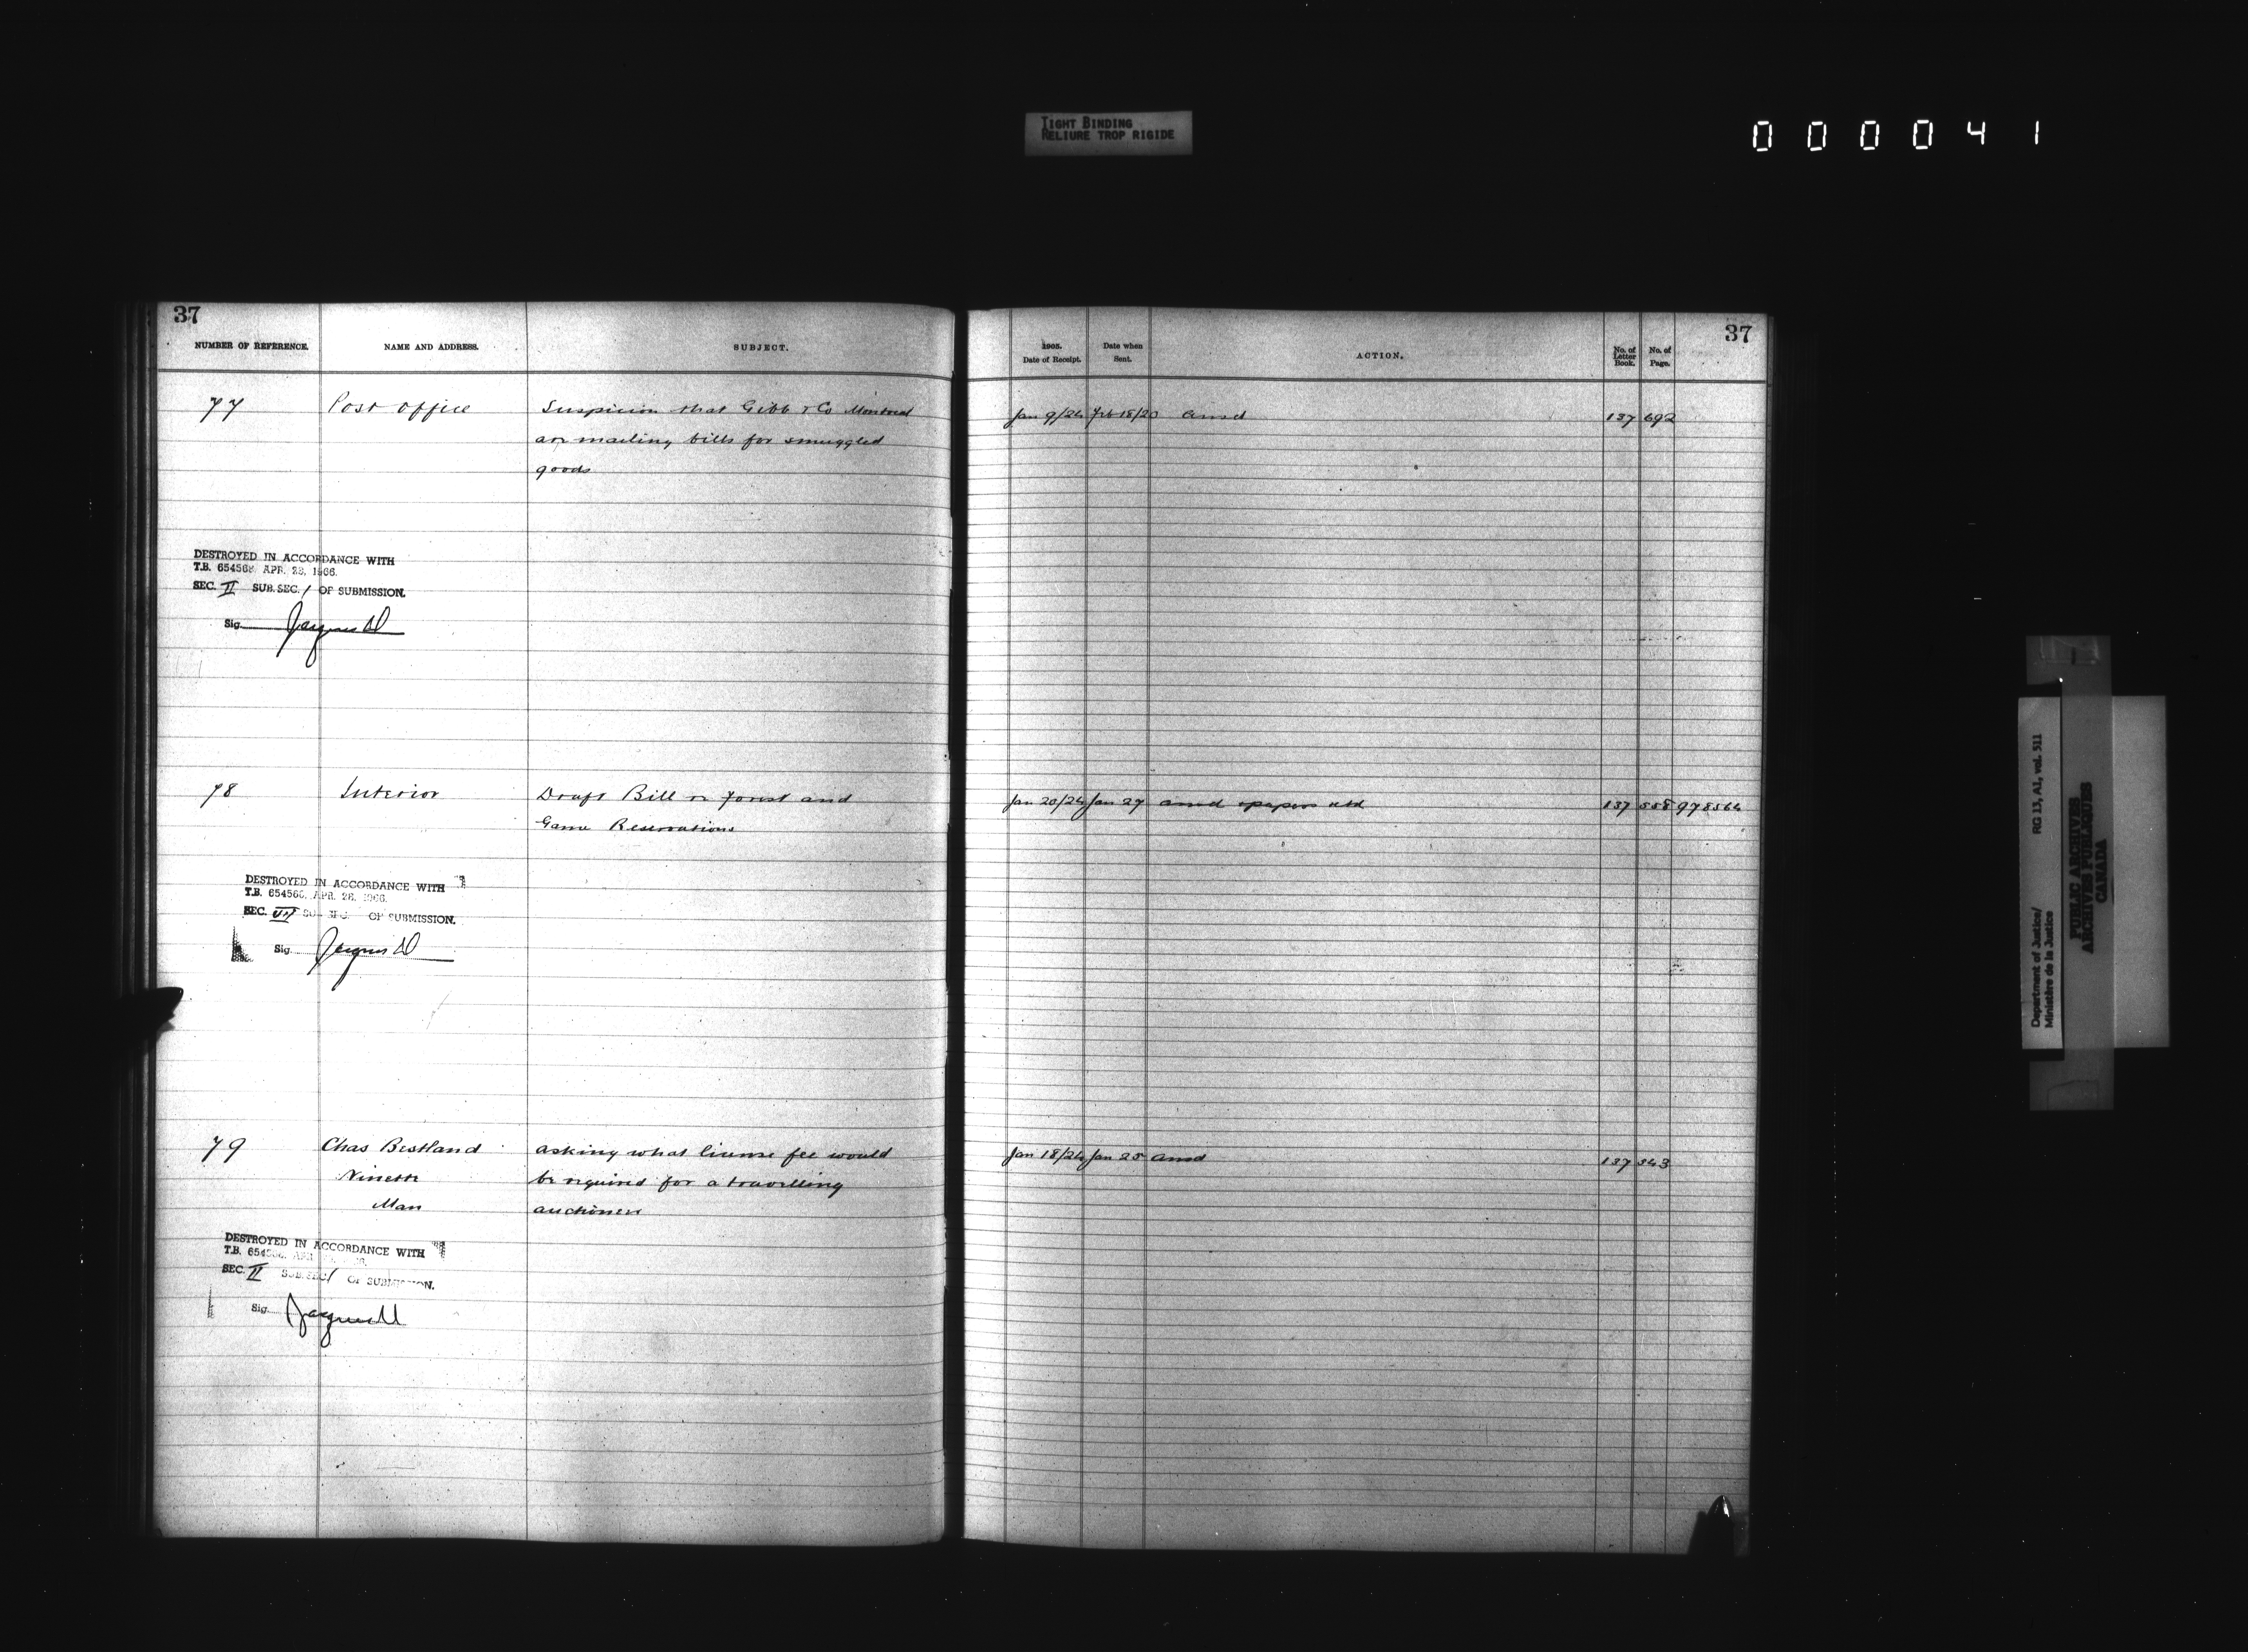 TIGHT BINDING
RELIURE TROP RIGIDE
000041
37
NUMBER OF REFERENCE. NAME AND ADDRESS. SUBJECT.
77 Post Office Suspicion that Gibb & Co Montreal
are mailing bills for smuggled
goods
DESTROYED IN ACCORDANCE WITH
T.B. 654568 APR. 28, 1966.
SEC. II SUB.SEC. / OF SUBMISSION.
Sig.
78 Interior Draft Bill re forest and
Game Reservations
DESTROYED IN ACCORDANCE WITH
T.B. 654566, APR. 28, 1966.
SEC. VII SUB SEC. OF SUBMISSION.
Sig.
79 Chas Bestland asking what license fee would
Ninette be required for a travelling
Man auctioneer
DESTROYED IN ACCORDANCE WITH
T.B.
SEC. II SUB.SEC. / OF SUBMISSION.
Sig.
37
1905. Date of Receipt. Date when Sent. ACTION. No. of Letter Book. No. of Page.
Jan 9/24 Feb 18/20 ansd 137 692
Jan 20/24 Jan 27 ansd & papers rtd 137 558 978564
Jan 18/24 Jan 25 ansd 137 543
Department of Justice/ RG 13, A1, vol. 511
Ministère de la Justice
PUBLIC ARCHIVES
ARCHIVES PUBLIQUES
CANADA